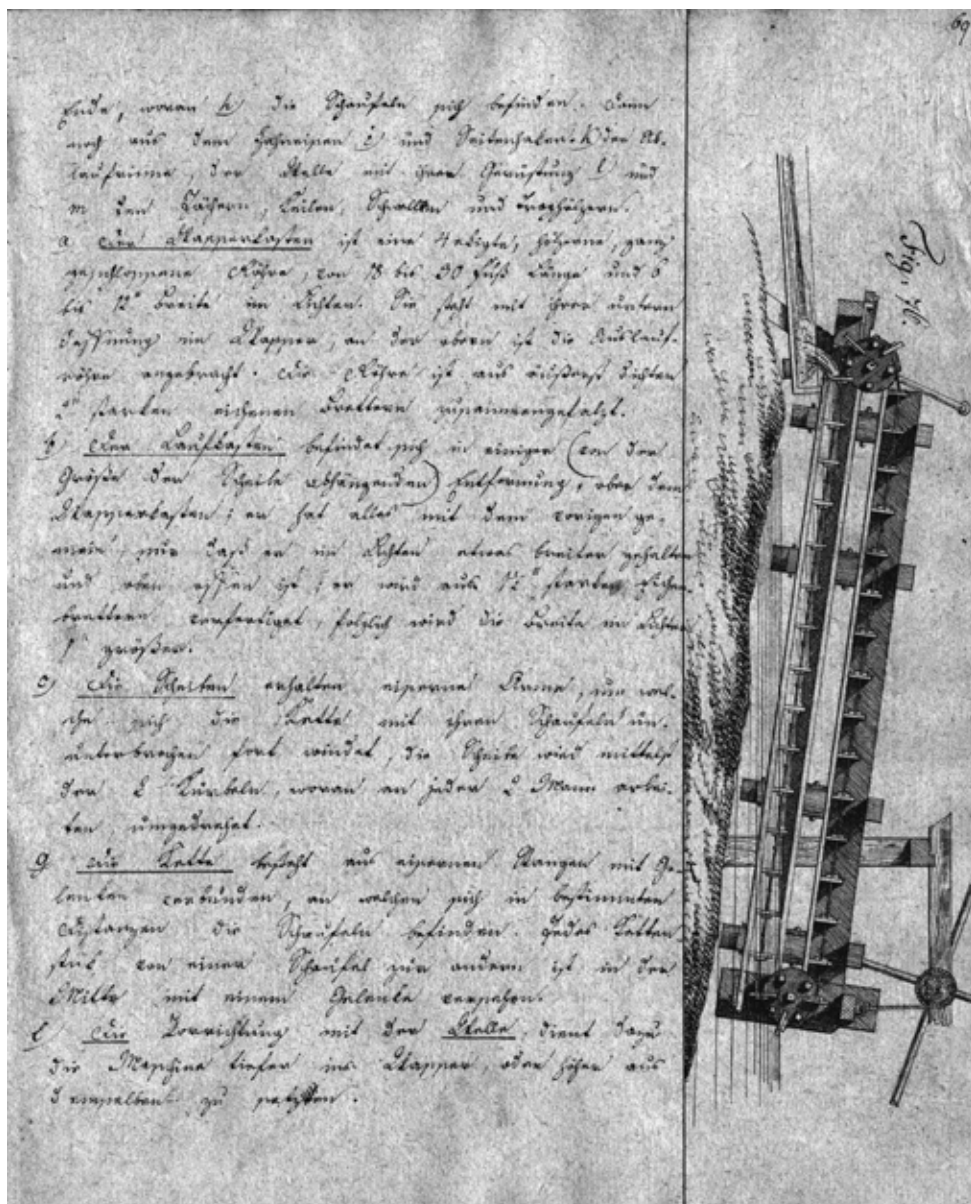 69
Ende, woran h die Schaufeln sich befinden. Dann
noch aus dem Zahneisen i und Seitenhaken k der Ab-
laufrinne, der Welle mit ihrer Gerüstung l und
m den Löchern, Keilen, Schwellen und Traghölzern.
a Der Wasserkasten ist eine 4 ekigte, hölzerne, ganz
geschlossene Röhre, von 18 bis 30 Fuß Länge und 6
bis 12" Breite im Lichten. Sie steht mit ihrer untern
Oeffnung im Wasser, an der obern ist die Auslauf-
röhre angebracht. Die Röhre ist aus äußerst dichten
2" starken eichenen Brettern zusammengefalzt.
b) Der Laufkasten befindet sich in einiger (von der
Größe der Scheibe abhängenden) Entfernung, ober dem
Wasserkasten; er hat alles mit dem vorigen ge-
mein, nur daß er im Lichten etwas breiter gehalten
und oben offen ist; er wird aus 1½" starken
brettern verfertiget, folglich wird die Breite im Lichten
1" größer.
c) Die Scheiben erhalten eiserne Arme, um wel-
che sich die Kette mit ihren Schaufeln un-
unterbrochen fort windet, die Scheibe wird mittelst
der 2 Kurbeln, woran an jeder 2 Mann arbei-
ten, umgedrehet.
g Die Kette besteht aus eisernen Stangen mit Ge-
lenken verbunden, an welchen sich in bestimmten
Distanzen die Schaufeln befinden. Jedes Ketten
stük von einer Schaufel zur andern ist in der
Mitte mit einem Gelenke versehen.
l) Die Vorrichtung mit der Welle, dient dazu
die Maschine tiefer ins Wasser, oder höher aus
demselben zu setzen.
Fig. 76.